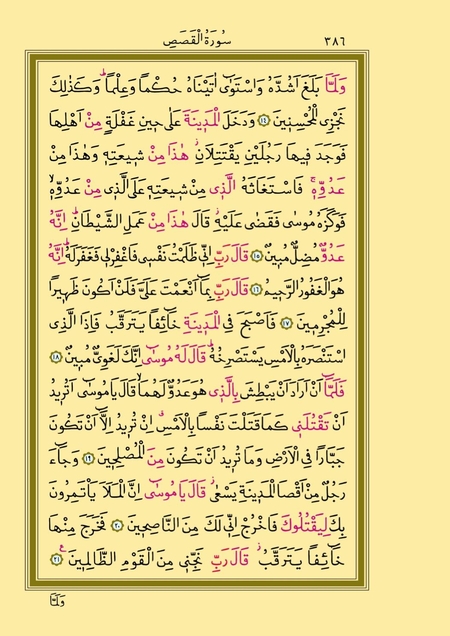 سُورَةُ الْقَصَصِ ٣٨٦
وَلَمَّا بَلَغَ اَشُدَّهُ وَاسْتَوٰٓى اٰتَيْنَاهُ حُكْماً وَعِلْماًۜ وَكَذٰلِكَ
نَجْزِي الْمُحْسِن۪ينَ ﴿١٤﴾ وَدَخَلَ الْمَد۪ينَةَ عَلٰى ح۪ينِ غَفْلَةٍ مِنْ اَهْلِهَا
فَوَجَدَ ف۪يهَا رَجُلَيْنِ يَقْتَتِلَانِۘ هٰذَا مِنْ ش۪يعَتِه۪ وَهٰذَا مِنْ
عَدُوِّه۪ۚ فَاسْتَغَاثَهُ الَّذ۪ي مِنْ ش۪يعَتِه۪ عَلَى الَّذ۪ي مِنْ عَدُوِّه۪ۙ
فَوَكَزَهُ مُوسٰى فَقَضٰى عَلَيْهِۘ قَالَ هٰذَا مِنْ عَمَلِ الشَّيْطَانِۜ اِنَّهُ
عَدُوٌّ مُضِلٌّ مُب۪ينٌ ﴿١٥﴾ قَالَ رَبِّ اِنّ۪ي ظَلَمْتُ نَفْس۪ي فَاغْفِرْ ل۪ي فَغَفَرَ لَهُۜ اِنَّهُ
هُوَ الْغَفُورُ الرَّح۪يمُ ﴿١٦﴾ قَالَ رَبِّ بِمَٓا اَنْعَمْتَ عَلَيَّ فَلَنْ اَكُونَ ظَه۪يراً
لِلْمُجْرِم۪ينَ ﴿١٧﴾ فَاَصْبَحَ فِي الْمَد۪ينَةِ خَٓائِفاً يَتَرَقَّبُ فَاِذَا الَّذِي
اسْتَنْصَرَهُ بِالْاَمْسِ يَسْتَصْرِخُهُۜ قَالَ لَهُ مُوسٰٓى اِنَّكَ لَغَوِيٌّ مُب۪ينٌ ﴿١٨﴾
فَلَمَّٓا اَنْ اَرَادَ اَنْ يَبْطِشَ بِالَّذ۪ي هُوَ عَدُوٌّ لَهُمَاۙ قَالَ يَا مُوسٰٓى اَتُر۪يدُ
اَنْ تَقْتُلَن۪ي كَمَا قَتَلْتَ نَفْساً بِالْاَمْسِۗ اِنْ تُر۪يدُ اِلَّٓا اَنْ تَكُونَ
جَبَّاراً فِي الْاَرْضِ وَمَا تُر۪يدُ اَنْ تَكُونَ مِنَ الْمُصْلِح۪ينَ ﴿١٩﴾ وَجَٓاءَ
رَجُلٌ مِنْ اَقْصَا الْمَد۪ينَةِ يَسْعٰىۘ قَالَ يَا مُوسٰٓى اِنَّ الْمَلَاَ يَأْتَمِرُونَ
بِكَ لِيَقْتُلُوكَ فَاخْرُجْ اِنّ۪ي لَكَ مِنَ النَّاصِح۪ينَ ﴿٢٠﴾ فَخَرَجَ مِنْهَا
خَٓائِفاً يَتَرَقَّبُۘ قَالَ رَبِّ نَجِّن۪ي مِنَ الْقَوْمِ الظَّالِم۪ينَ ﴿٢١﴾
وَلَمَّا